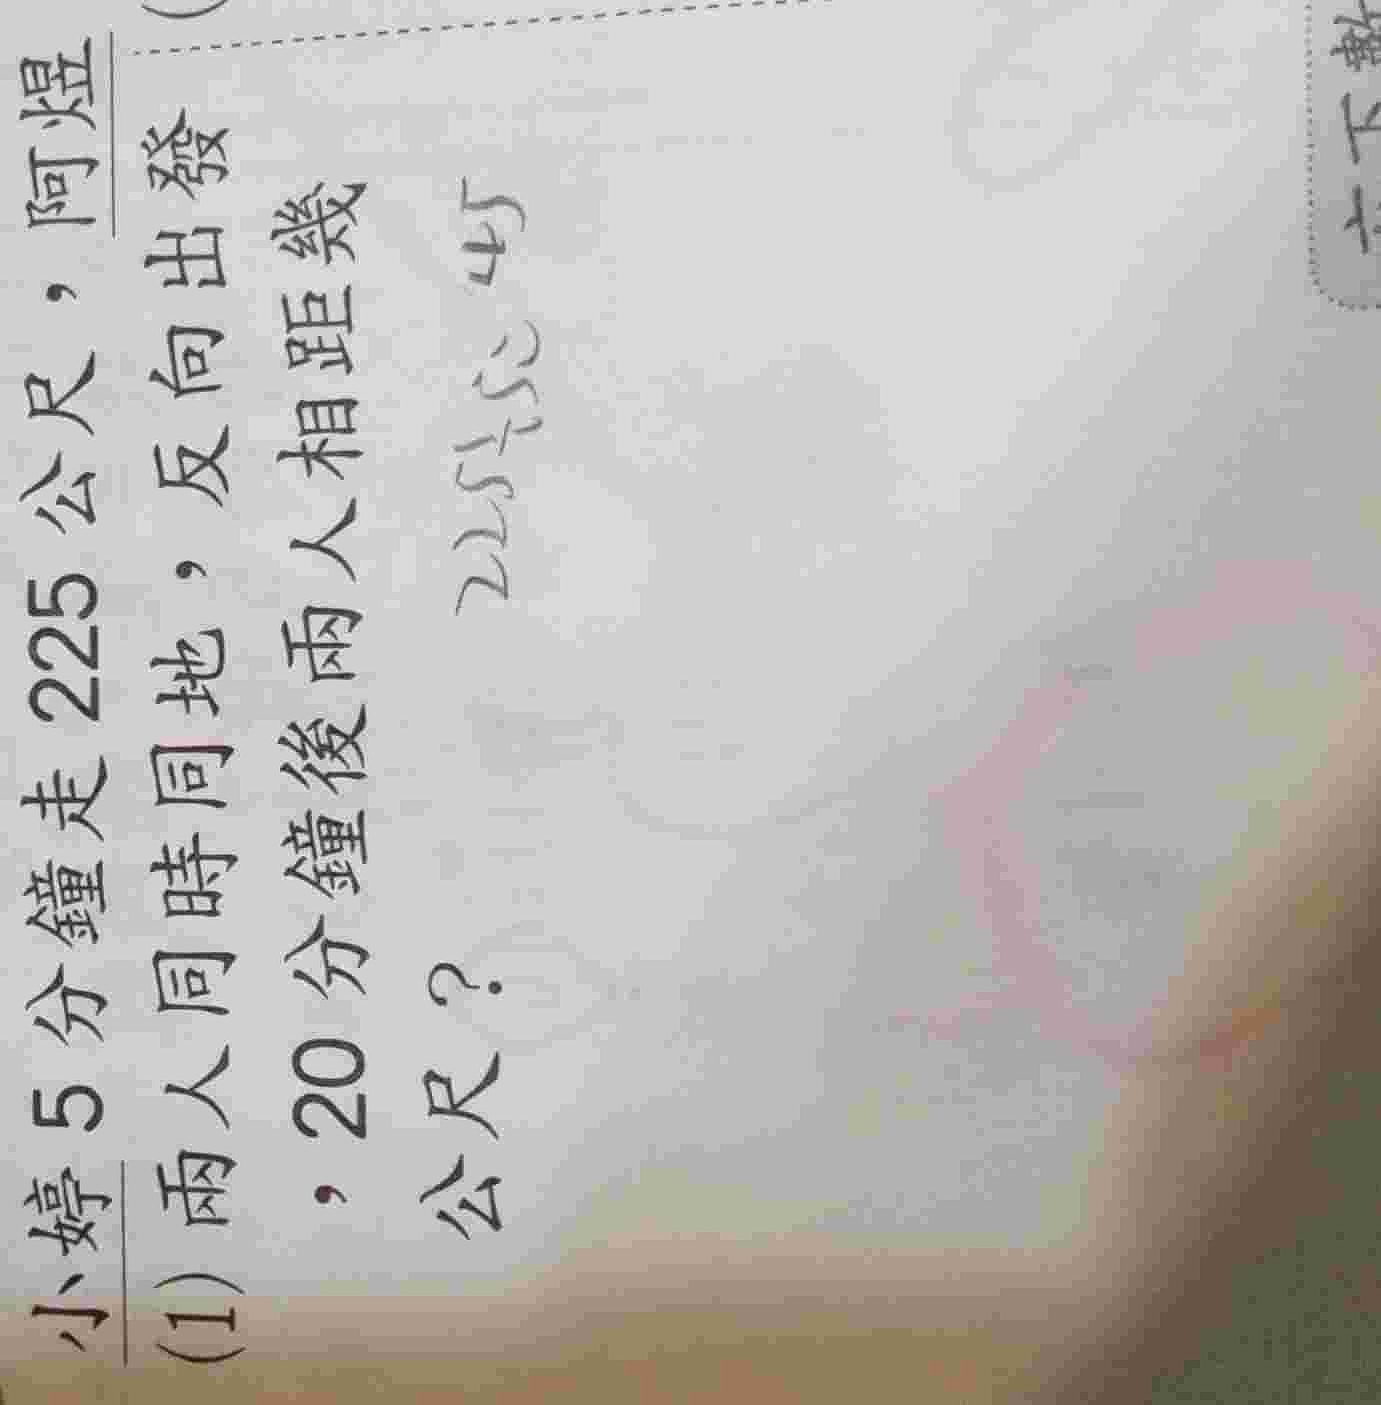 小婷 5 分鐘走 225 公尺，阿煜
(1) 兩人同時同地，反向出發
，20 分鐘後兩人相距幾
公尺？
225÷5= 45
六下數